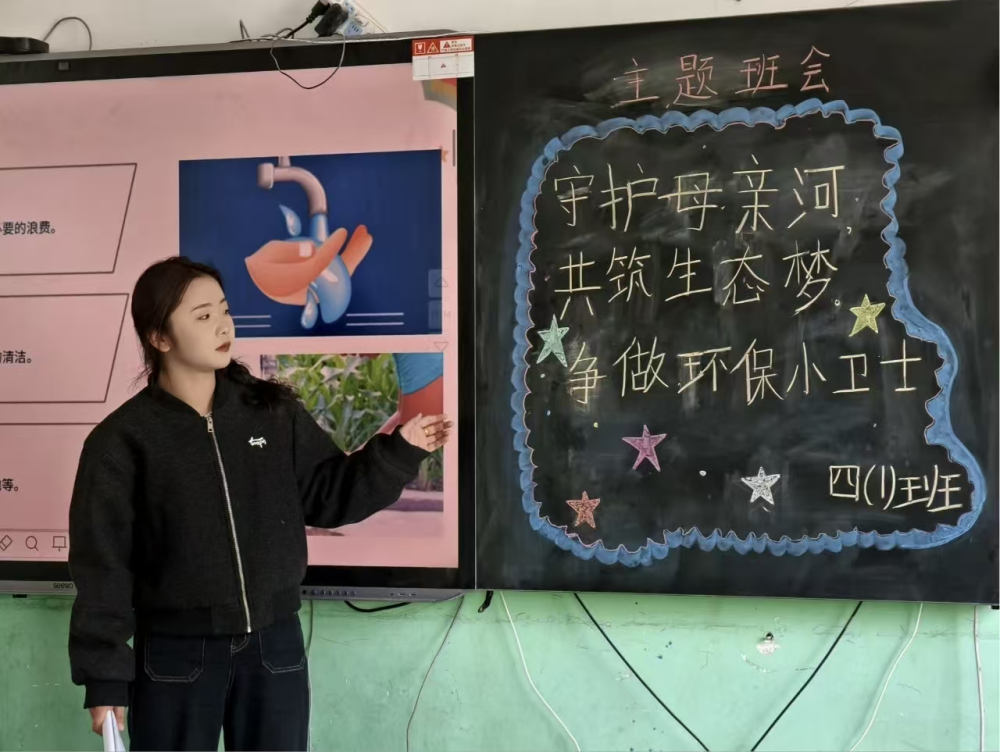 要的浪费。
清洁。
等。
主题班会
守护母亲河,
共筑生态梦.
争做环保小卫士
四(1)班